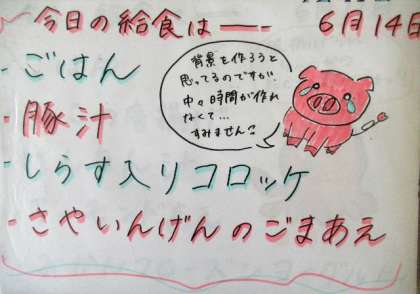 今日の給食は── 6月14日
・ごはん
・豚汁
・しらす入りコロッケ
・さやいんげんのごまあえ
背景を作ろうと
思ってるのですが、
中々時間が作れ
なくて…
すみません💦